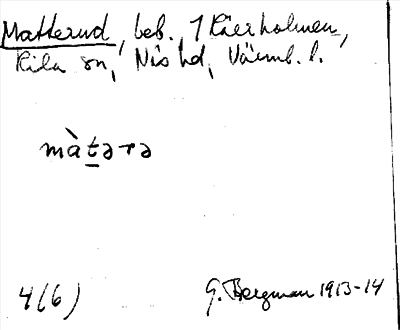 Matterud, beb. 1 Kierholmen,
Kila sn, Näs hd, Värml. l.
mà̀t̲ərə
4(6)
G. Bergman 1913-14